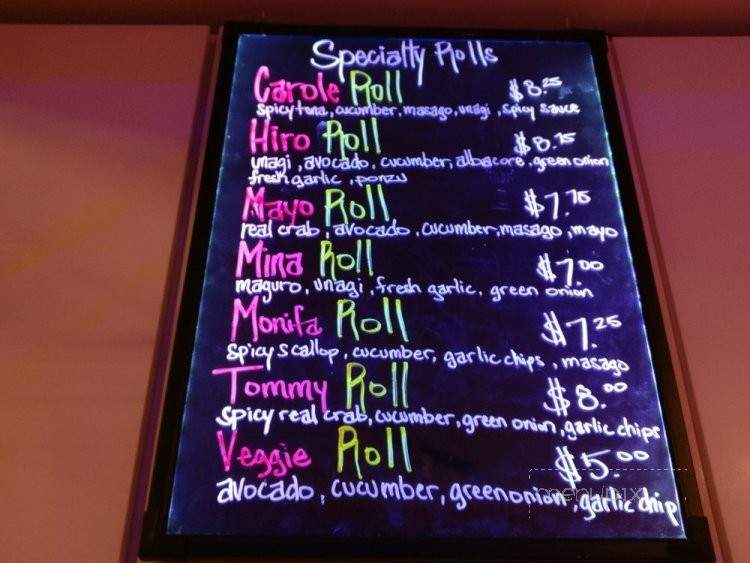 Specialty Rolls
Carole Roll $8.25
spicy tuna, cucumber, masago, unagi, spicy sauce
Hiro Roll $8.75
unagi, avocado, cucumber, albacore, green onion
fresh garlic, ponzu
Mayo Roll $7.75
real crab, avocado, cucumber, masago, mayo
Mina Roll $7.00
maguro, unagi, fresh garlic, green onion
Monifa Roll $7.25
spicy scallop, cucumber, garlic chips, masago
Tommy Roll $8.00
spicy real crab, cucumber, green onion, garlic chips
Veggie Roll $5.00
avocado, cucumber, green onion, garlic chip
menupix